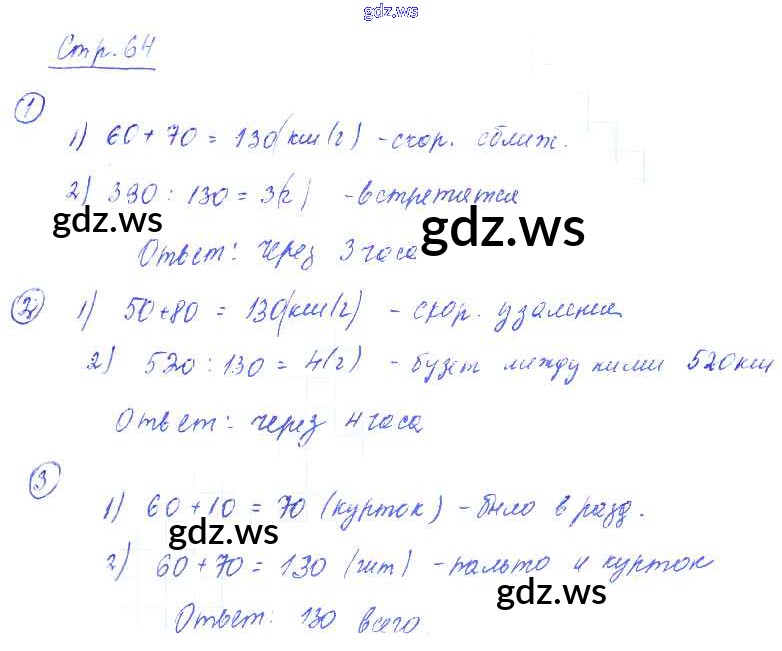 gdz.ws
Стр. 64
1
1) 60 + 70 = 130 (км/ч) - скор. сближ.
2) 390 : 130 = 3 (ч) - встретятся
gdz.ws
gdz.ws
Ответ: через 3 часа
2
1) 50 + 80 = 130 (км/ч) - скор. удаления
2) 520 : 130 = 4 (ч) - будет между ними 520 км
Ответ: через 4 часа
3
1) 60 + 10 = 70 (курток) - было в разд.
gdz.ws
2) 60 + 70 = 130 (шт) - пальто и курток
gdz.ws
Ответ: 130 всего.